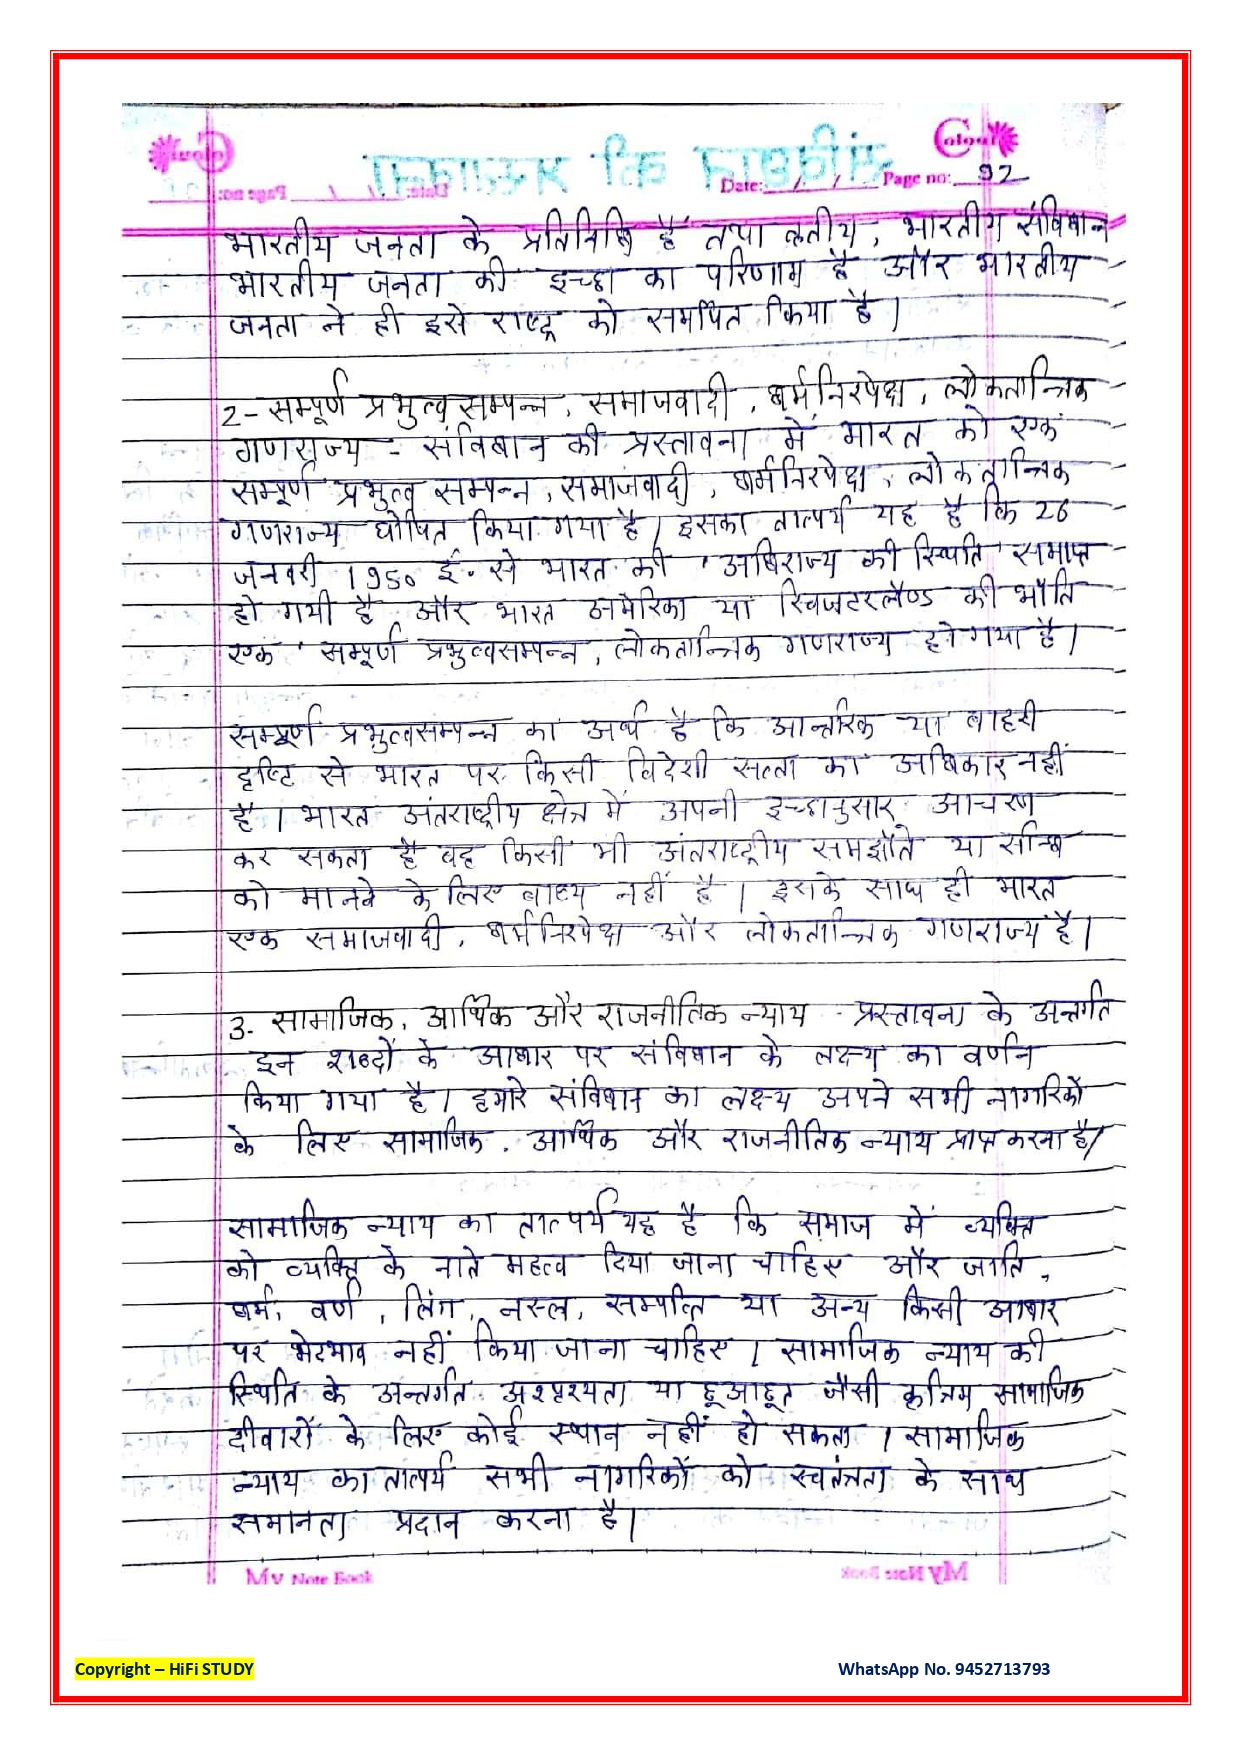 Colour
Date: / / Page no: 92
भारतीय जनता के प्रतिनिधि हैं तथा तृतीय, भारतीय संविधान
भारतीय जनता की इच्छा का परिणाम है और भारतीय
जनता ने ही इसे राष्ट्र को समर्पित किया है।
2- सम्पूर्ण प्रभुत्व सम्पन्न, समाजवादी, धर्मनिरपेक्ष, लोकतान्त्रिक
गणराज्य - संविधान की प्रस्तावना में भारत को एक
सम्पूर्ण प्रभुत्व सम्पन्न, समाजवादी, धर्मनिरपेक्ष, लोकतान्त्रिक
गणराज्य घोषित किया गया है। इसका तात्पर्य यह है कि 26
जनवरी 1950 ई. से भारत की 'अधिराज्य की स्थिति' समाप्त
हो गयी है और भारत अमेरिका या स्विजटरलैण्ड की भाँति
एक 'सम्पूर्ण प्रभुत्वसम्पन्न, लोकतान्त्रिक गणराज्य हो गया है।
सम्पूर्ण प्रभुत्वसम्पन्न का अर्थ है कि आन्तरिक या बाहरी
दृष्टि से भारत पर किसी विदेशी सत्ता का अधिकार नहीं
है। भारत अंतराष्ट्रीय क्षेत्र में अपनी इच्छानुसार आचरण
कर सकता है वह किसी भी अंतराष्ट्रीय समझौते या सन्धि
को मानने के लिए बाध्य नहीं है। इसके साथ ही भारत
एक समाजवादी, धर्मनिरपेक्ष और लोकतान्त्रिक गणराज्य है।
3- सामाजिक, आर्थिक और राजनीतिक न्याय - प्रस्तावना के अन्तर्गत
इन शब्दों के आधार पर संविधान के लक्ष्य का वर्णन
किया गया है। हमारे संविधान का लक्ष्य अपने सभी नागरिकों
के लिए सामाजिक, आर्थिक और राजनीतिक न्याय प्राप्त करना है।
सामाजिक न्याय का तात्पर्य यह है कि समाज में व्यक्ति
को व्यक्ति के नाते महत्व दिया जाना चाहिए और जाति,
धर्म, वर्ण, लिंग, नस्ल, सम्पत्ति या अन्य किसी आधार
पर भेदभाव नहीं किया जाना चाहिए। सामाजिक न्याय की
स्थिति के अन्तर्गत अश्पृश्यता या छूआछूत जैसी कृत्रिम सामाजिक
दीवारों के लिए कोई स्थान नहीं हो सकता। सामाजिक
न्याय का तात्पर्य सभी नागरिकों को स्वतंत्रता के साथ
समानता प्रदान करना है।
My Note Book
Copyright – HiFi STUDY WhatsApp No. 9452713793